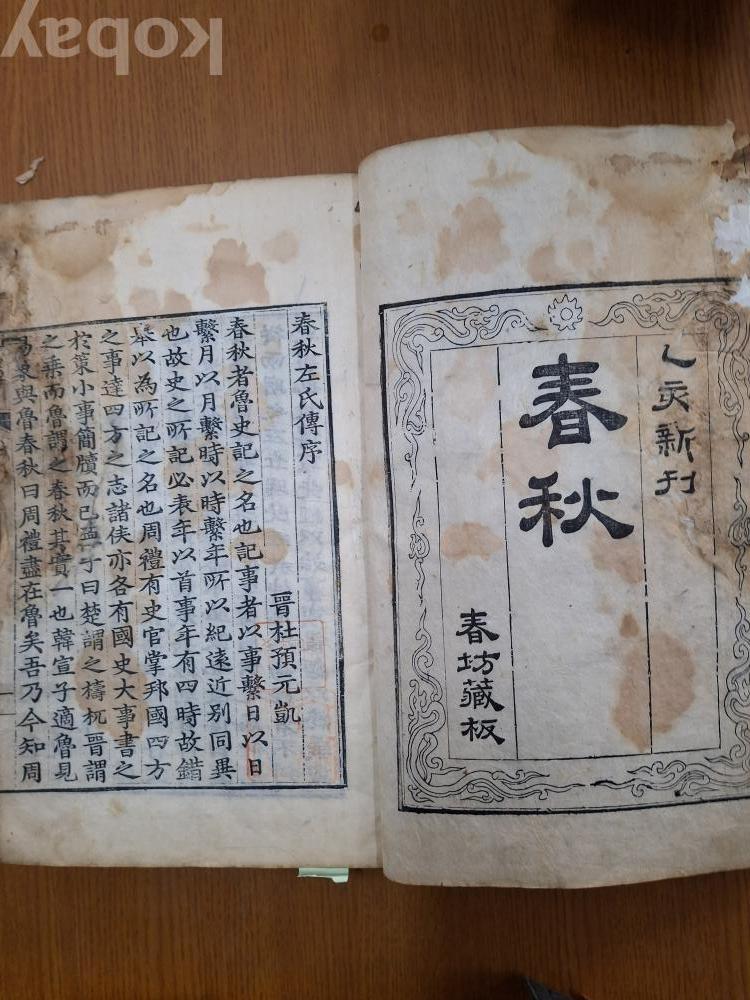 乙亥新刊
春秋
春坊藏板
春秋左氏傳序
晉杜預元凱
春秋者魯史記之名也記事者以事繫日以日
繫月以月繫時以時繫年所以紀遠近別同異
也故史之所記必表年以首事年有四時故錯
舉以為所記之名也周禮有史官掌邦國四方
之事達四方之志諸侯亦各有國史大事書之
於策小事簡牘而已孟子曰楚謂之檮杌晉謂
之乘而魯謂之春秋其實一也韓宣子適魯見
易象與魯春秋曰周禮盡在魯矣吾乃今知周
kobay